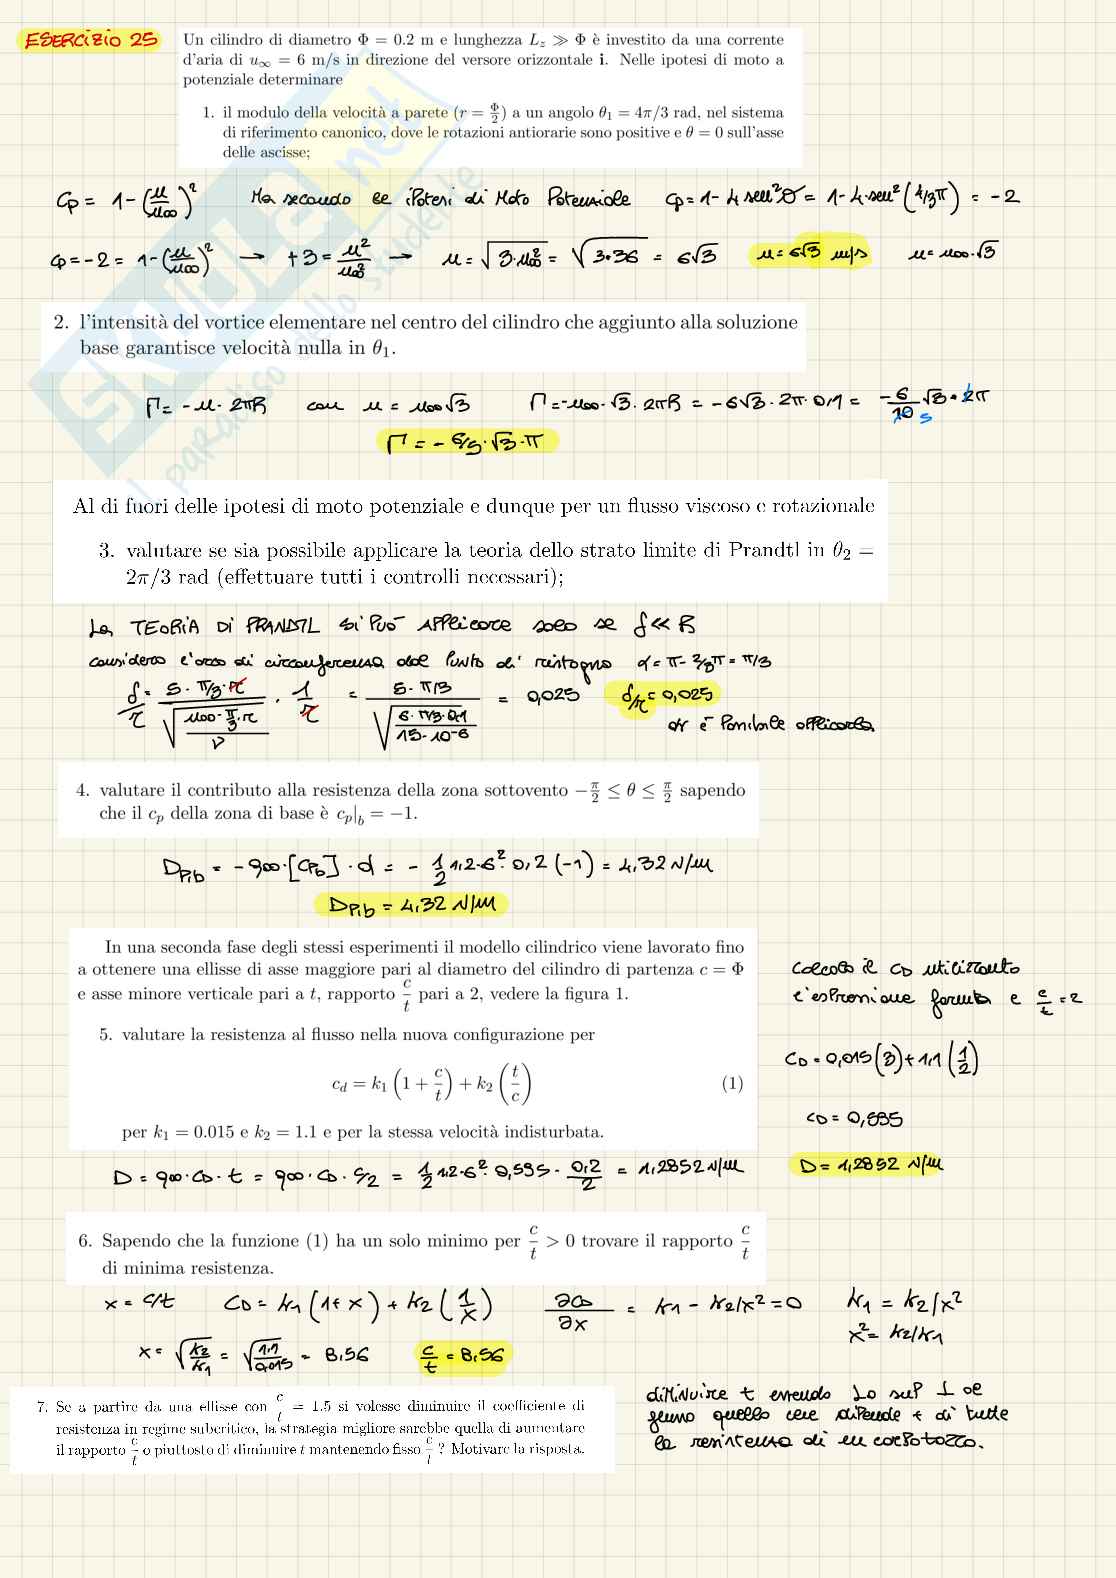 ESERCIZIO 25
Un cilindro di diametro Φ = 0.2 m e lunghezza L_z ≫ Φ è investito da una corrente
d'aria di u_∞ = 6 m/s in direzione del versore orizzontale i. Nelle ipotesi di moto a
potenziale determinare
1. il modulo della velocità a parete (r = Φ/2) a un angolo θ₁ = 4π/3 rad, nel sistema
di riferimento canonico, dove le rotazioni antiorarie sono positive e θ = 0 sull'asse
delle ascisse;
Cp = 1-(u/u∞)² Ma secondo le ipotesi di Moto Potenziale Cp = 1-4 sen²θ = 1-4·sen²(4/3π) = -2
Cp = -2 = 1-(u/u∞)² → +3 = u²/u∞² → u = √(3·u∞²) = √(3·36) = 6√3 u = 6√3 m/s u = u∞·√3
2. l'intensità del vortice elementare nel centro del cilindro che aggiunto alla soluzione
base garantisce velocità nulla in θ₁.
Γ = -u·2πR con u = u∞√3 Γ = -u∞·√3·2πR = -6√3·2π·0,1 = -6/10 5 √3·2π
Γ = -6/5·√3·π
Al di fuori delle ipotesi di moto potenziale e dunque per un flusso viscoso e rotazionale
3. valutare se sia possibile applicare la teoria dello strato limite di Prandtl in θ₂ =
2π/3 rad (effettuare tutti i controlli necessari);
La TEORIA DI PRANDTL si può APPlicare solo se δ ≪ R
considero l'arco di circonferenza dal Punto di ristagno α = π - 2/3π = π/3
δ/r = 5·π/3·r / √(u∞·π/3·r / ν) · 1/r = 5·π/3 / √(6·π/3·0,1 / 15·10⁻⁶) = 0,025 δ/r = 0,025
è Possibile applicarla
4. valutare il contributo alla resistenza della zona sottovento −π/2 ≤ θ ≤ π/2 sapendo
che il c_p della zona di base è c_p|_b = −1.
D_P,b = -q∞·[Cp_b]·d = -1/2 1,2·6²·0,2(-1) = 4,32 N/m
D_P,b = 4,32 N/m
In una seconda fase degli stessi esperimenti il modello cilindrico viene lavorato fino
a ottenere una ellisse di asse maggiore pari al diametro del cilindro di partenza c = Φ
e asse minore verticale pari a t, rapporto c/t pari a 2, vedere la figura 1.
calcolo il CD utilizzando
l'espressione fornita e c/t = 2
5. valutare la resistenza al flusso nella nuova configurazione per
c_d = k₁(1 + c/t) + k₂(t/c) (1)
per k₁ = 0.015 e k₂ = 1.1 e per la stessa velocità indisturbata.
CD = 0,015(3) + 1,1(1/2)
CD = 0,595
D = q∞·CD·t = q∞·CD·c/2 = 1/2 1,2·6²·0,595·0,2/2 = 1,2852 N/m
D = 1,2852 N/m
6. Sapendo che la funzione (1) ha un solo minimo per c/t > 0 trovare il rapporto c/t
di minima resistenza.
x = c/t CD = k₁(1+x) + k₂(1/x) ∂CD/∂x = k₁ - k₂/x² = 0 k₁ = k₂/x²
x² = k₂/k₁
x = √(k₂/k₁) = √(1,1/0,015) = 8,56 c/t = 8,56
7. Se a partire da una ellisse con c/t = 1.5 si volesse diminuire il coefficiente di
resistenza in regime subcritico, la strategia migliore sarebbe quella di aumentare
il rapporto c/t o piuttosto di diminuire t mantenendo fisso c/t ? Motivare la risposta.
diMiNuire t essendo la sup ⊥ al
flusso quello che dipende + di tutte
la resistenza di un corpo tozzo.
SKUOLA.net
il paradiso dello studente